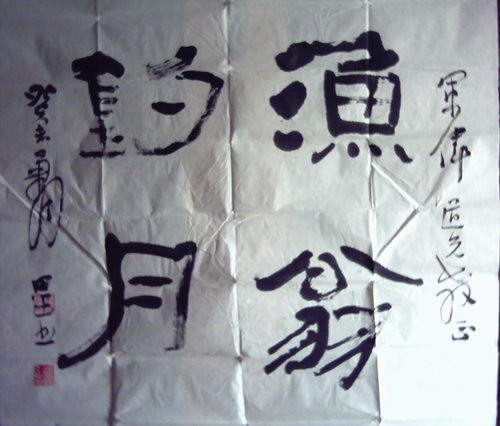 军伟道兄教正
渔翁
钓月
癸未夏月
书